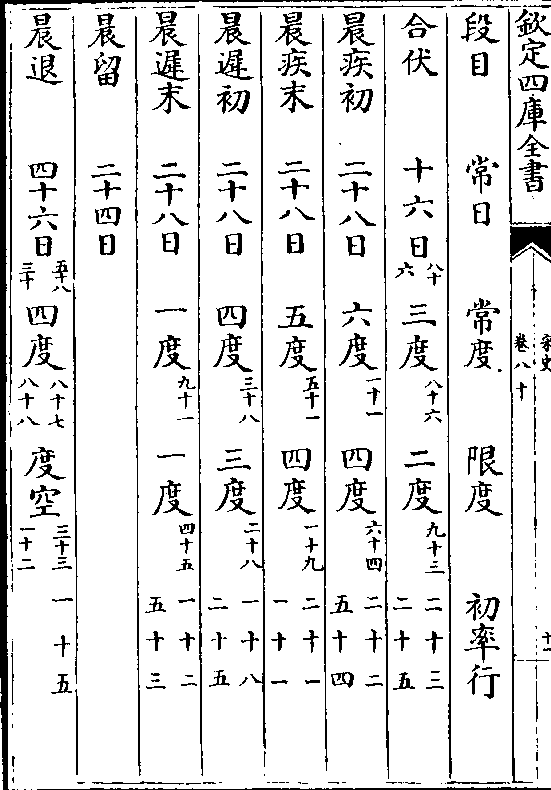 欽定四庫全書
宋史
卷八十
十一
段目 常日 常度 限度 初率行
合伏 十六日 八十六 三度 八十六 二度 九十三 二十三 二十五
晨疾初 二十八日 六度 一十一 四度 六十四 二十二 五十四
晨疾末 二十八日 五度 五十一 四度 一十九 二十一 一十一
晨遲初 二十八日 四度 三十八 三度 二十八 一十八 二十五
晨遲末 二十八日 一度 九十一 一度 四十五 一十二 五十三
晨留 二十四日
晨退 四十六日 五十八 三十 四度 八十七 八十八 度空 三十三 一十二 一十五